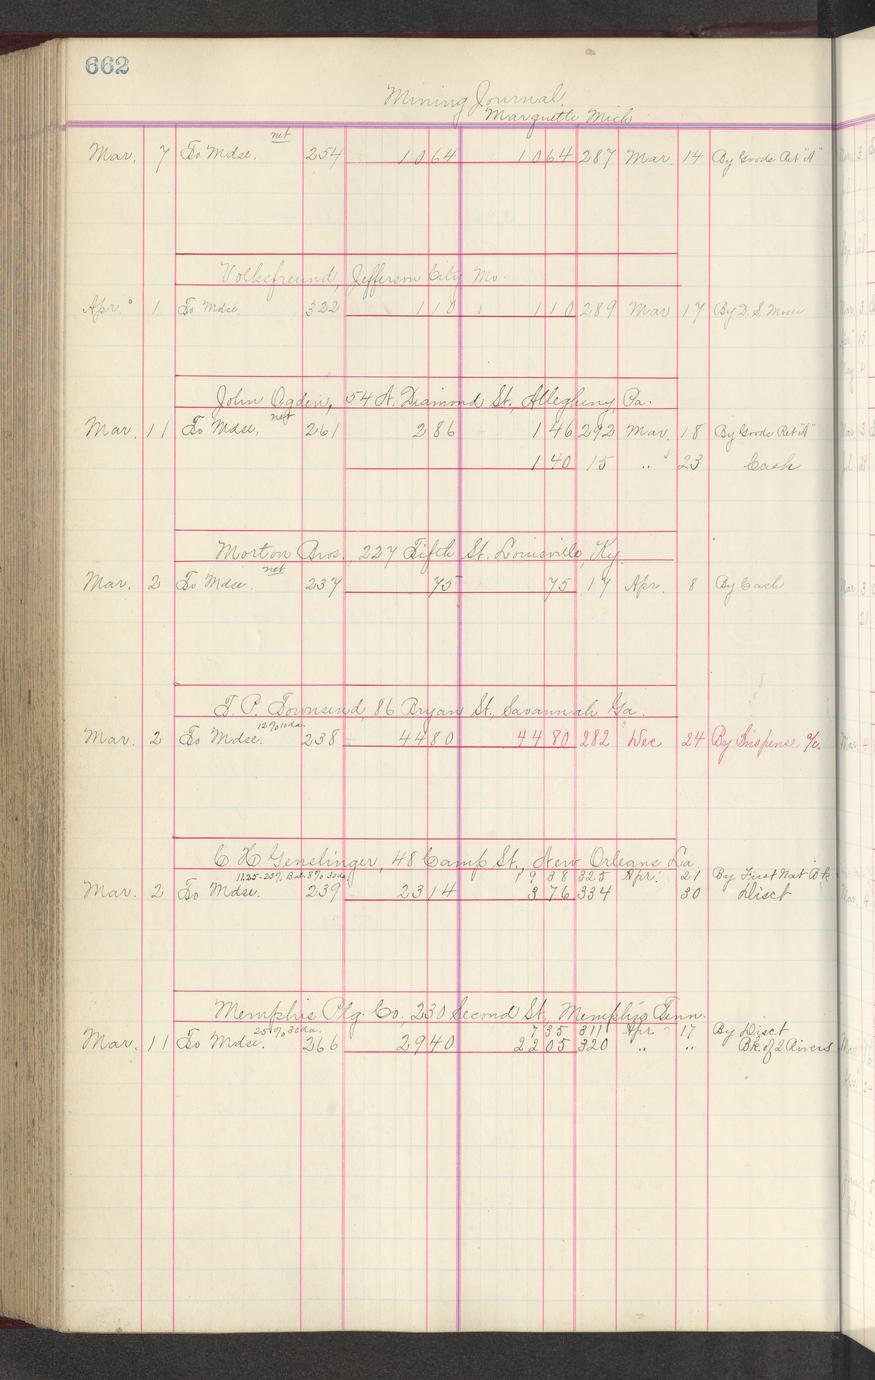 662
Mining Journal
Marquette Mich
net
Mar. 7 To Mdse. 254 1064 1064 287 Mar. 14 By Goods Ret "A"
Volksfreund, Jefferson City Mo.
Apr. 1 To Mdse. 322 110 110 289 Mar 17 By D. S. Morse
John Ogden, 54 N. Diamond St., Allegheny, Pa.
net
Mar. 11 To Mdse. 261 286 146 292 Mar. 18 By Goods Ret "A"
140 15 " 23 Cash
Morton Bros. 227 Fifth St. Louisville, Ky.
net
Mar. 2 To Mdse. 237 75 75 17 Apr. 8 By Cash
T. P. Townsend, 86 Bryan St., Savannah Ga.
12% 10 da.
Mar. 2 To Mdse. 238 4480 4480 282 Dec 24 By Suspense a/c.
C H Genslinger, 48 Camp St., New Orleans La
11.25-25% Bal. 8% 30 da. 1938 325 Apr. 21 By First Nat Bk
Mar. 2 To Mdse. 239 2314 376 334 30 Disct
Memphis Ptg. Co., 230 Second St., Memphis Tenn.
25% 30 da. 735 311 Apr. 17 By Disct
Mar. 11 To Mdse. 266 2940 2205 320 " " Bk. of 2 Rivers